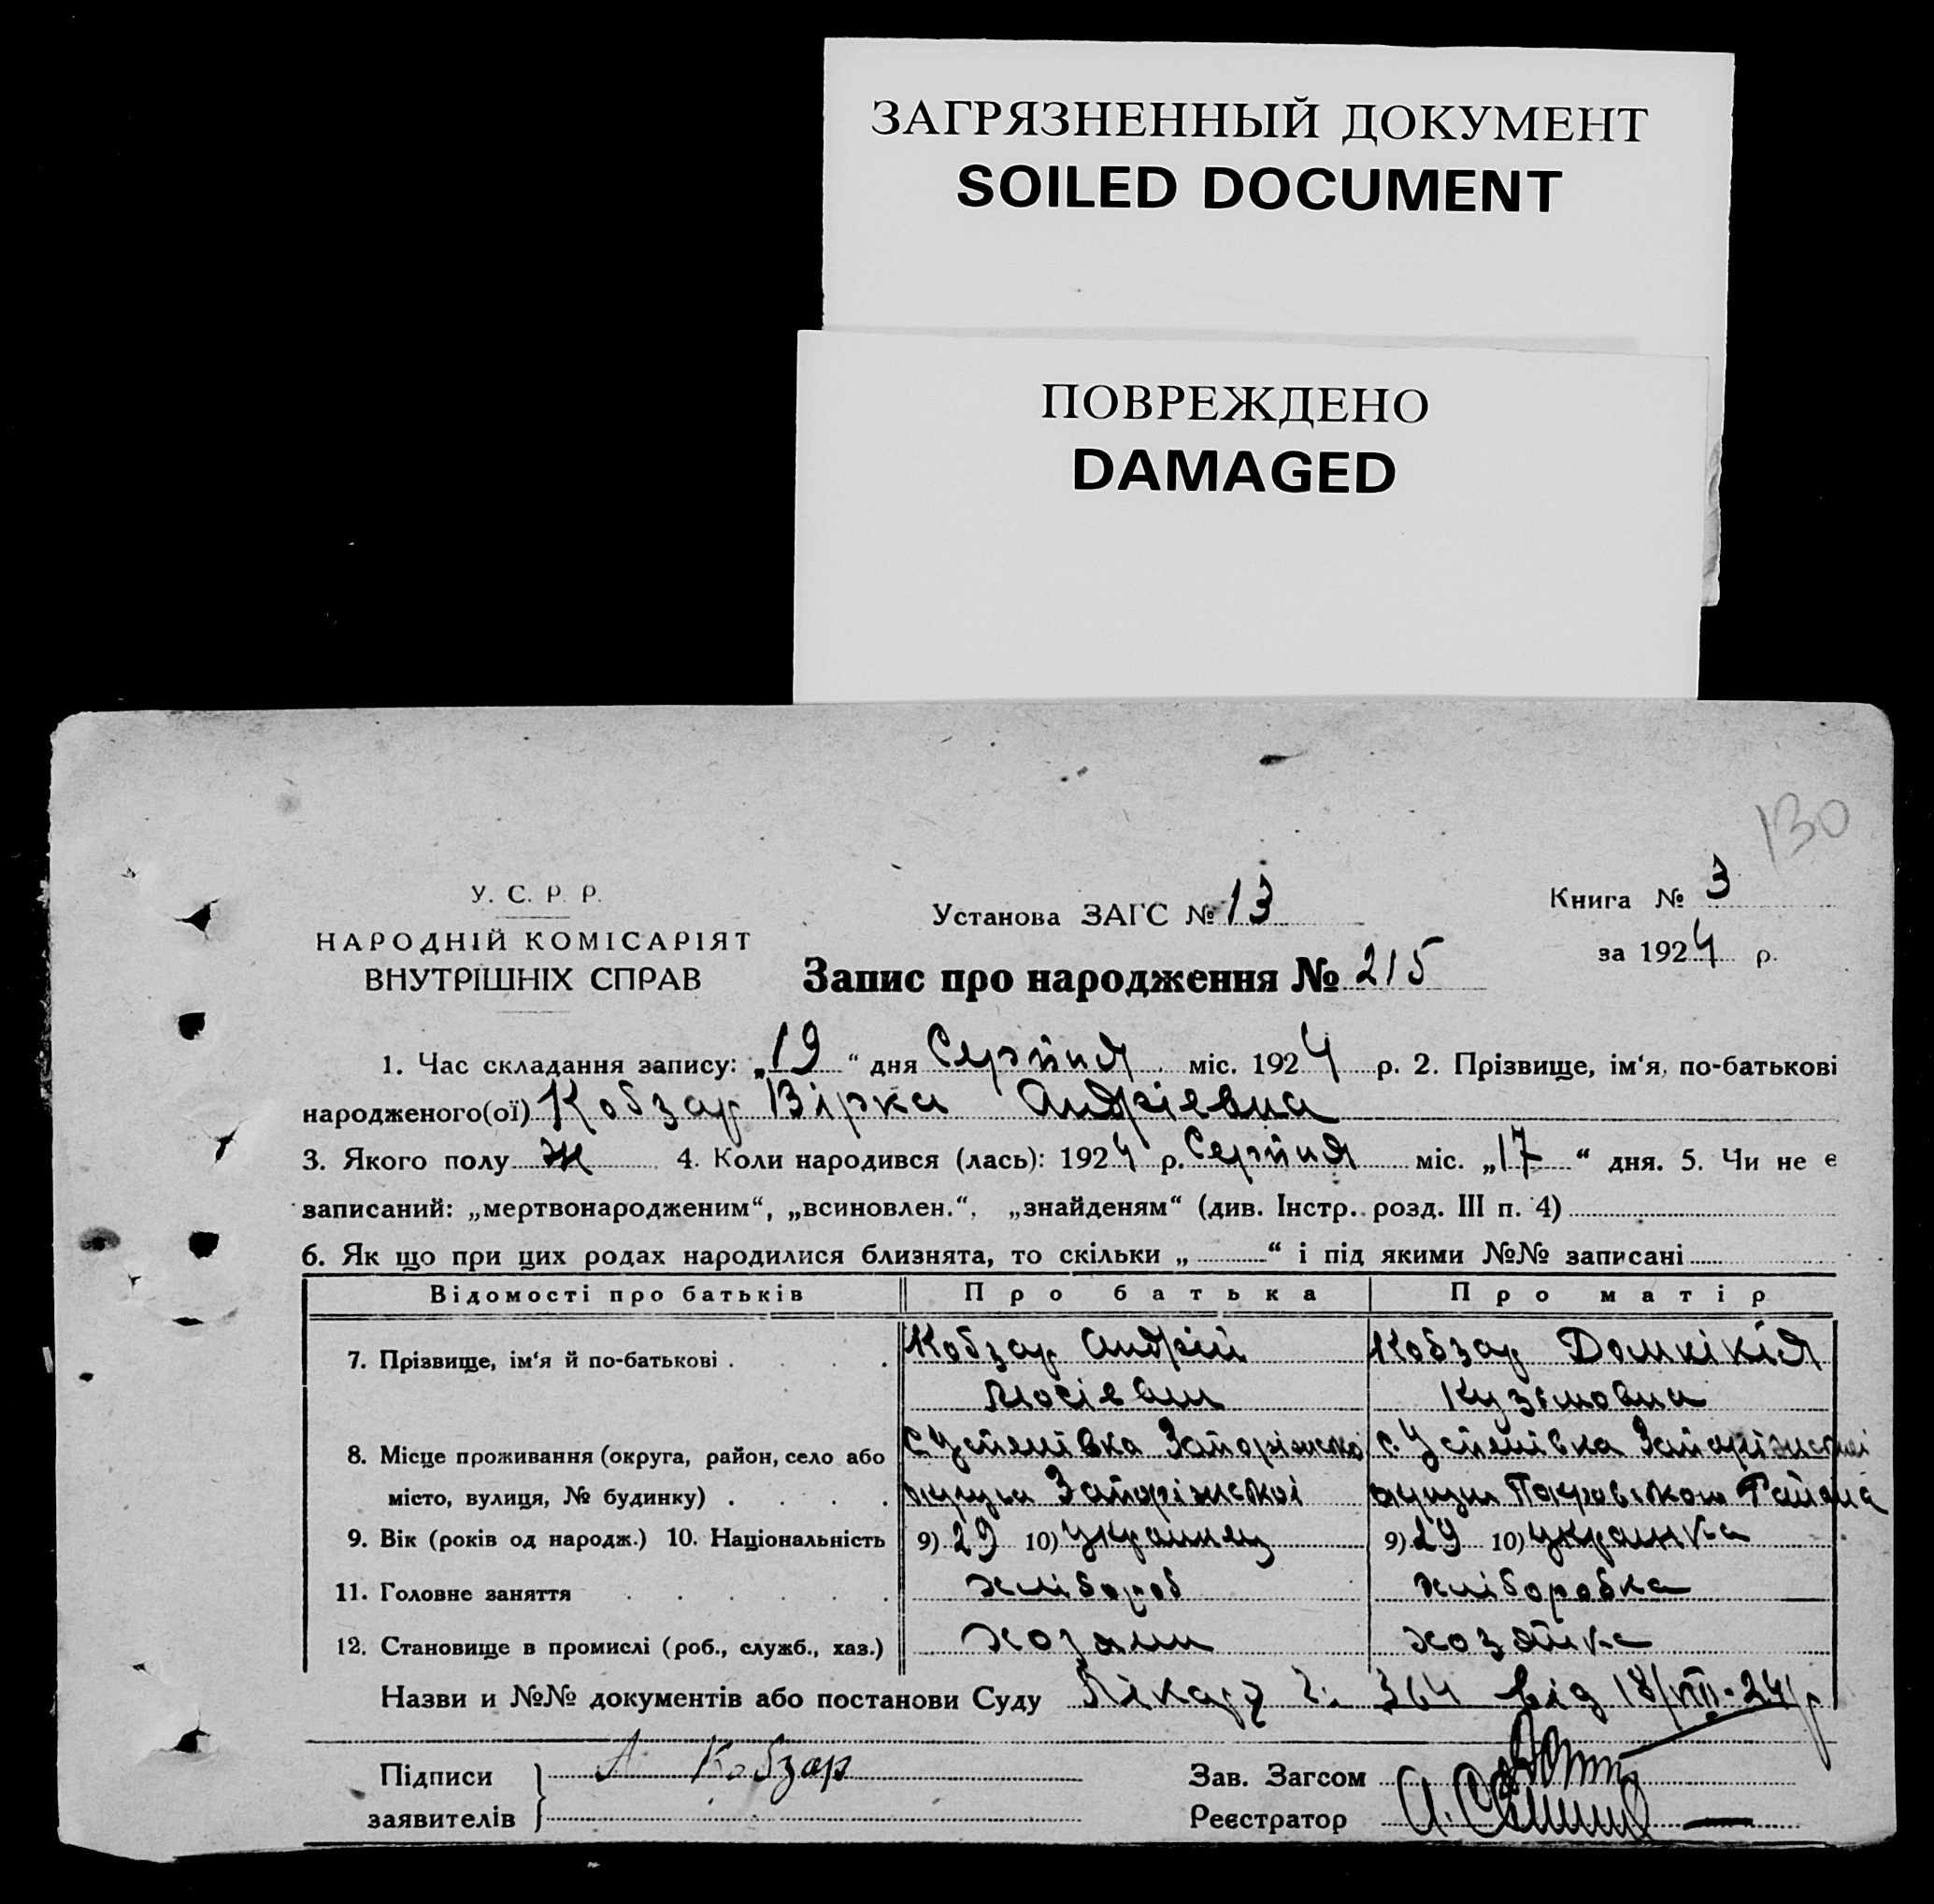 ЗАГРЯЗНЕННЫЙ ДОКУМЕНТ
SOILED DOCUMENT
ПОВРЕЖДЕНО
DAMAGED
130
У. С. Р. Р.
НАРОДНІЙ КОМІСАРІЯТ
ВНУТРІШНІХ СПРАВ
Установа ЗАГС № 13
Книга № 3
за 1924 р.
Запис про народження № 215
1. Час складання запису: „19“ дня Серпня міс. 1924 р. 2. Прізвище, ім‘я, по-батькові
народженого(ої) Кобзар Вірка Андріевна
3. Якого полу ж 4. Коли народився (лась): 1924 р. Серпня міс. „17“ дня. 5. Чи не є
записаний: „мертвонародженим“, „всиновлен.“, „знайденям“ (див. Інстр. розд. III п. 4)
6. Як що при цих родах народилися близнята, то скільки „ “ і під якими №№ записані
Відомості про батьків Про батька Про матір
7. Прізвище, ім‘я й по-батькові Кобзар Андрій Кобзар
Кузьмовна
8. Місце проживання (округа, район, село або с. Успенівка Запоріжської с. Успенівка Запоріжської
місто, вулиця, № будинку) округи Запоріжскоі округи Покровського Района
9. Вік (років од народж.) 10. Національність 9) 29 10) украинец 9) 29 10) украинка
11. Головне заняття хлібороб хліборобка
12. Становище в промислі (роб., служб., хаз.) хозяин хозяйка
Назви и №№ документів або постанови Суду 364 від 18/VIII-24 р
Підписи А Кобзар Зав. Загсом
заявителів Реєстратор